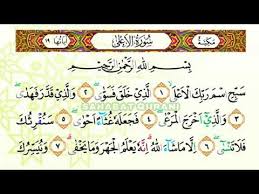 مكية سورة الأعلى آياتها ١٩
بِسْمِ اللَّهِ الرَّحْمَٰنِ الرَّحِيمِ
سَبِّحِ اسْمَ رَبِّكَ الْأَعْلَى ١ الَّذِي خَلَقَ فَسَوَّىٰ ٢ وَالَّذِي قَدَّرَ فَهَدَىٰ
SAHABAT QURANI
٣ وَالَّذِي أَخْرَجَ الْمَرْعَىٰ ٤ فَجَعَلَهُ غُثَاءً أَحْوَىٰ ٥ سَنُقْرِئُكَ
فَلَا تَنسَىٰ ٦ إِلَّا مَا شَاءَ اللَّهُ إِنَّهُ يَعْلَمُ الْجَهْرَ وَمَا يَخْفَىٰ ٧ وَنُيَسِّرُكَ